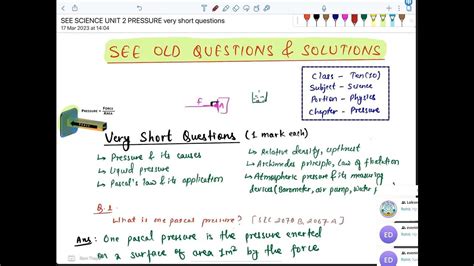 SEE SCIENCE UNIT 2 PRESSURE very short questions
17 Mar 2023 at 14:04
SEE OLD QUESTIONS & SOLUTIONS
Class - Ten(10)
Subject - Science
Portion - Physics
Chapter - Pressure
PRESSURE = FORCE
AREA
F
A
Very Short Questions (1 mark each)
→ Pressure & its causes
→ Liquid pressure
→ Pascal's law & its application
→ Relative density, upthrust
→ Archimedes principle, law of floatation
→ Atmospheric pressure & its measuring
devices (Barometer, air pump, water
Q.1
What is one pascal pressure? [SEE 2070 B, 2067 A]
Ans: One pascal pressure is the pressure exerted
on a surface of area 1m² by the force
ED
ED